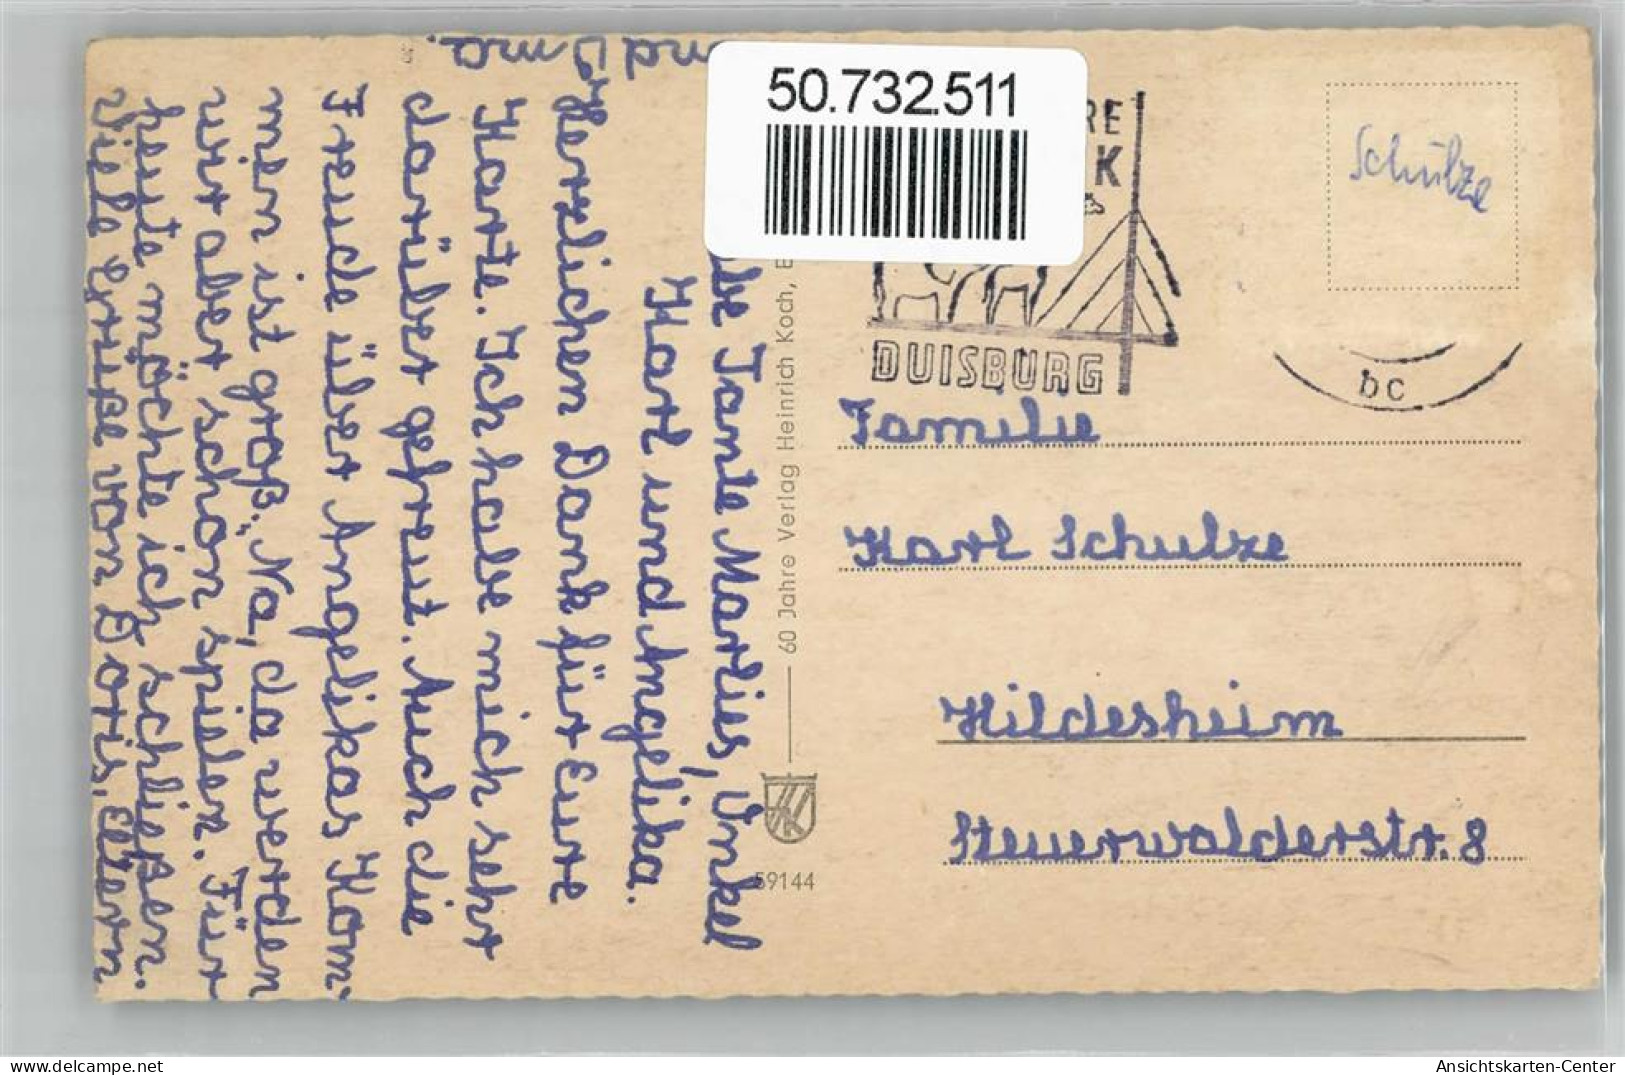 50.732.511
RE
K
DUISBURG
bc
Schulze
Familie
Karl Schulze
Hildesheim
Steuerwalderstr. 8
60 Jahre Verlag Heinrich Koch,
59144
Tante Marlies, Onkel
Karl und Angelika.
Herzlichen Dank für Eure
Karte. Ich habe mich sehr
darüber gefreut. Auch die
Freude über Angelikas Kom-
men ist groß. Na, da werden
wir aber schön spielen. Für
heute möchte ich schließen.
Viele Grüße von Doris, Eltern
und Oma.
Ansichtskarten-Center